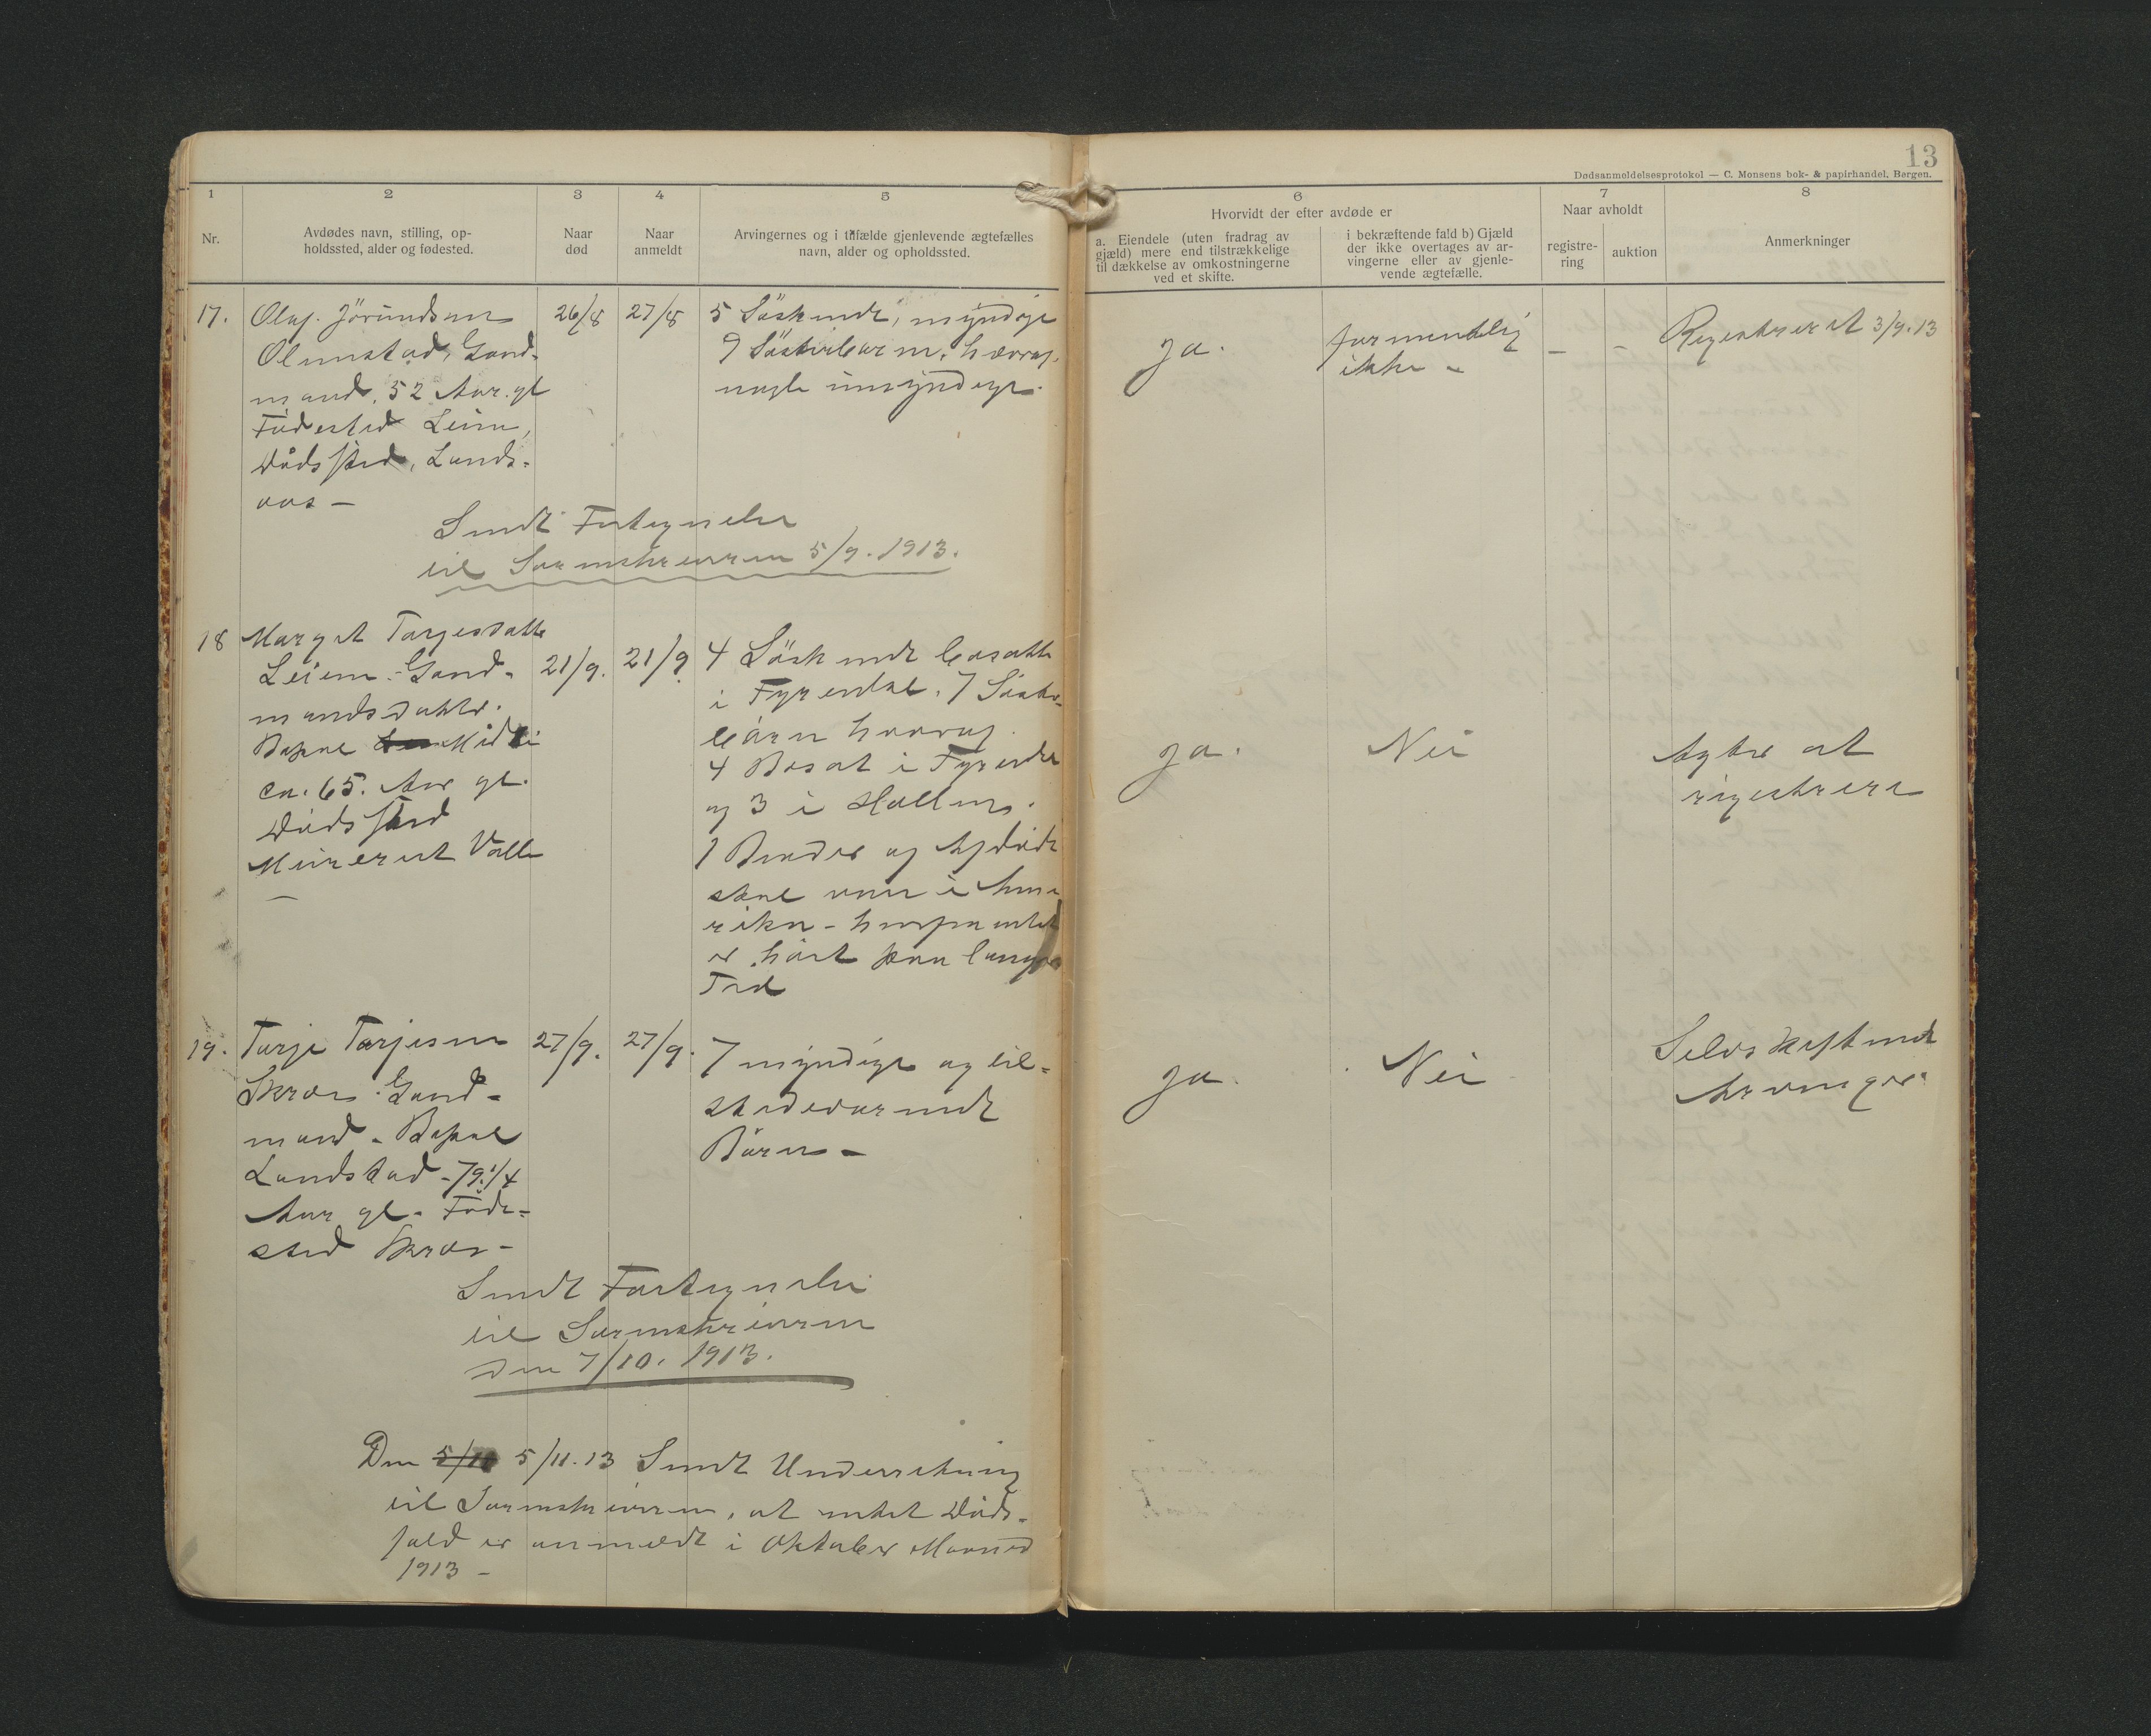 13
Dødsanmeldelsesprotokol — C. Monsens bok- & papirhandel, Bergen.
1
2
3
4
5
6
7
8
Nr.
Avdødes navn, stilling, op-
holdssted, alder og fødested.
Naar
død
Naar
anmeldt
Arvingernes og i tilfælde gjenlevende ægtefælles
navn, alder og opholdssted.
Hvorvidt der efter avdøde er
a. Eiendele (uten fradrag av
gjæld) mere end tilstrækkelige
til dækkelse av omkostningerne
ved et skifte.
i bekræftende fald b) Gjæld
der ikke overtages av ar-
vingerne eller av gjenle-
vende ægtefælle.
Naar avholdt
registre-
ring
auktion
Anmerkninger
17.
Olaf. Jörundsen
Olmstad, Gard-
mand, 52 Aar. gl
Födested Leim,
Dödssted, Lands-
aas —
26/8
27/8
5 Söskende, myndige
9 Söskenbarn, hvorav
nogle umyndige.
Ja.
formentlig
ikke -
—
-
Registreret 3/9.13
Sendt Fortegnelse
til Sorenskriveren 5/9. 1913.
18
Margit Targesdatter
Leiem - Gard-
mandsdatter.
Bopæl Midtli
ca. 65. Aar gl.
Dödssted
Moiseret Valle
—
21/9.
21/9
4 Söskende bosatte
i Fyresdal. 7 Sösken-
börn hvorav
4 Bosat i Fyresdal
og 3 i Holtens.
1 Broder og Afdöde
skal være i Ame
rika - hvorfra intet
er hört paa langen
Tid
Ja.
Nei
Agter at
registrere
19.
Targe Tarjesen
Skræs. Gard-
mand - Bopæl
Landstad - 79 1/4
Aar gl - Föde-
sted Skræs -
27/9.
27/9.
7 myndige og til-
stedeværende
Börn -
Ja.
Nei
Selvskiftende
Arvinger.
Sendt Fortegnelse
til Sorenskriveren
den 7/10. 1913.
Den 5/10 5/11.13 Sendt Underretning
til Sorenskriveren, at intet Döds-
fald er anmeldt i Oktober Maaned
1913 -